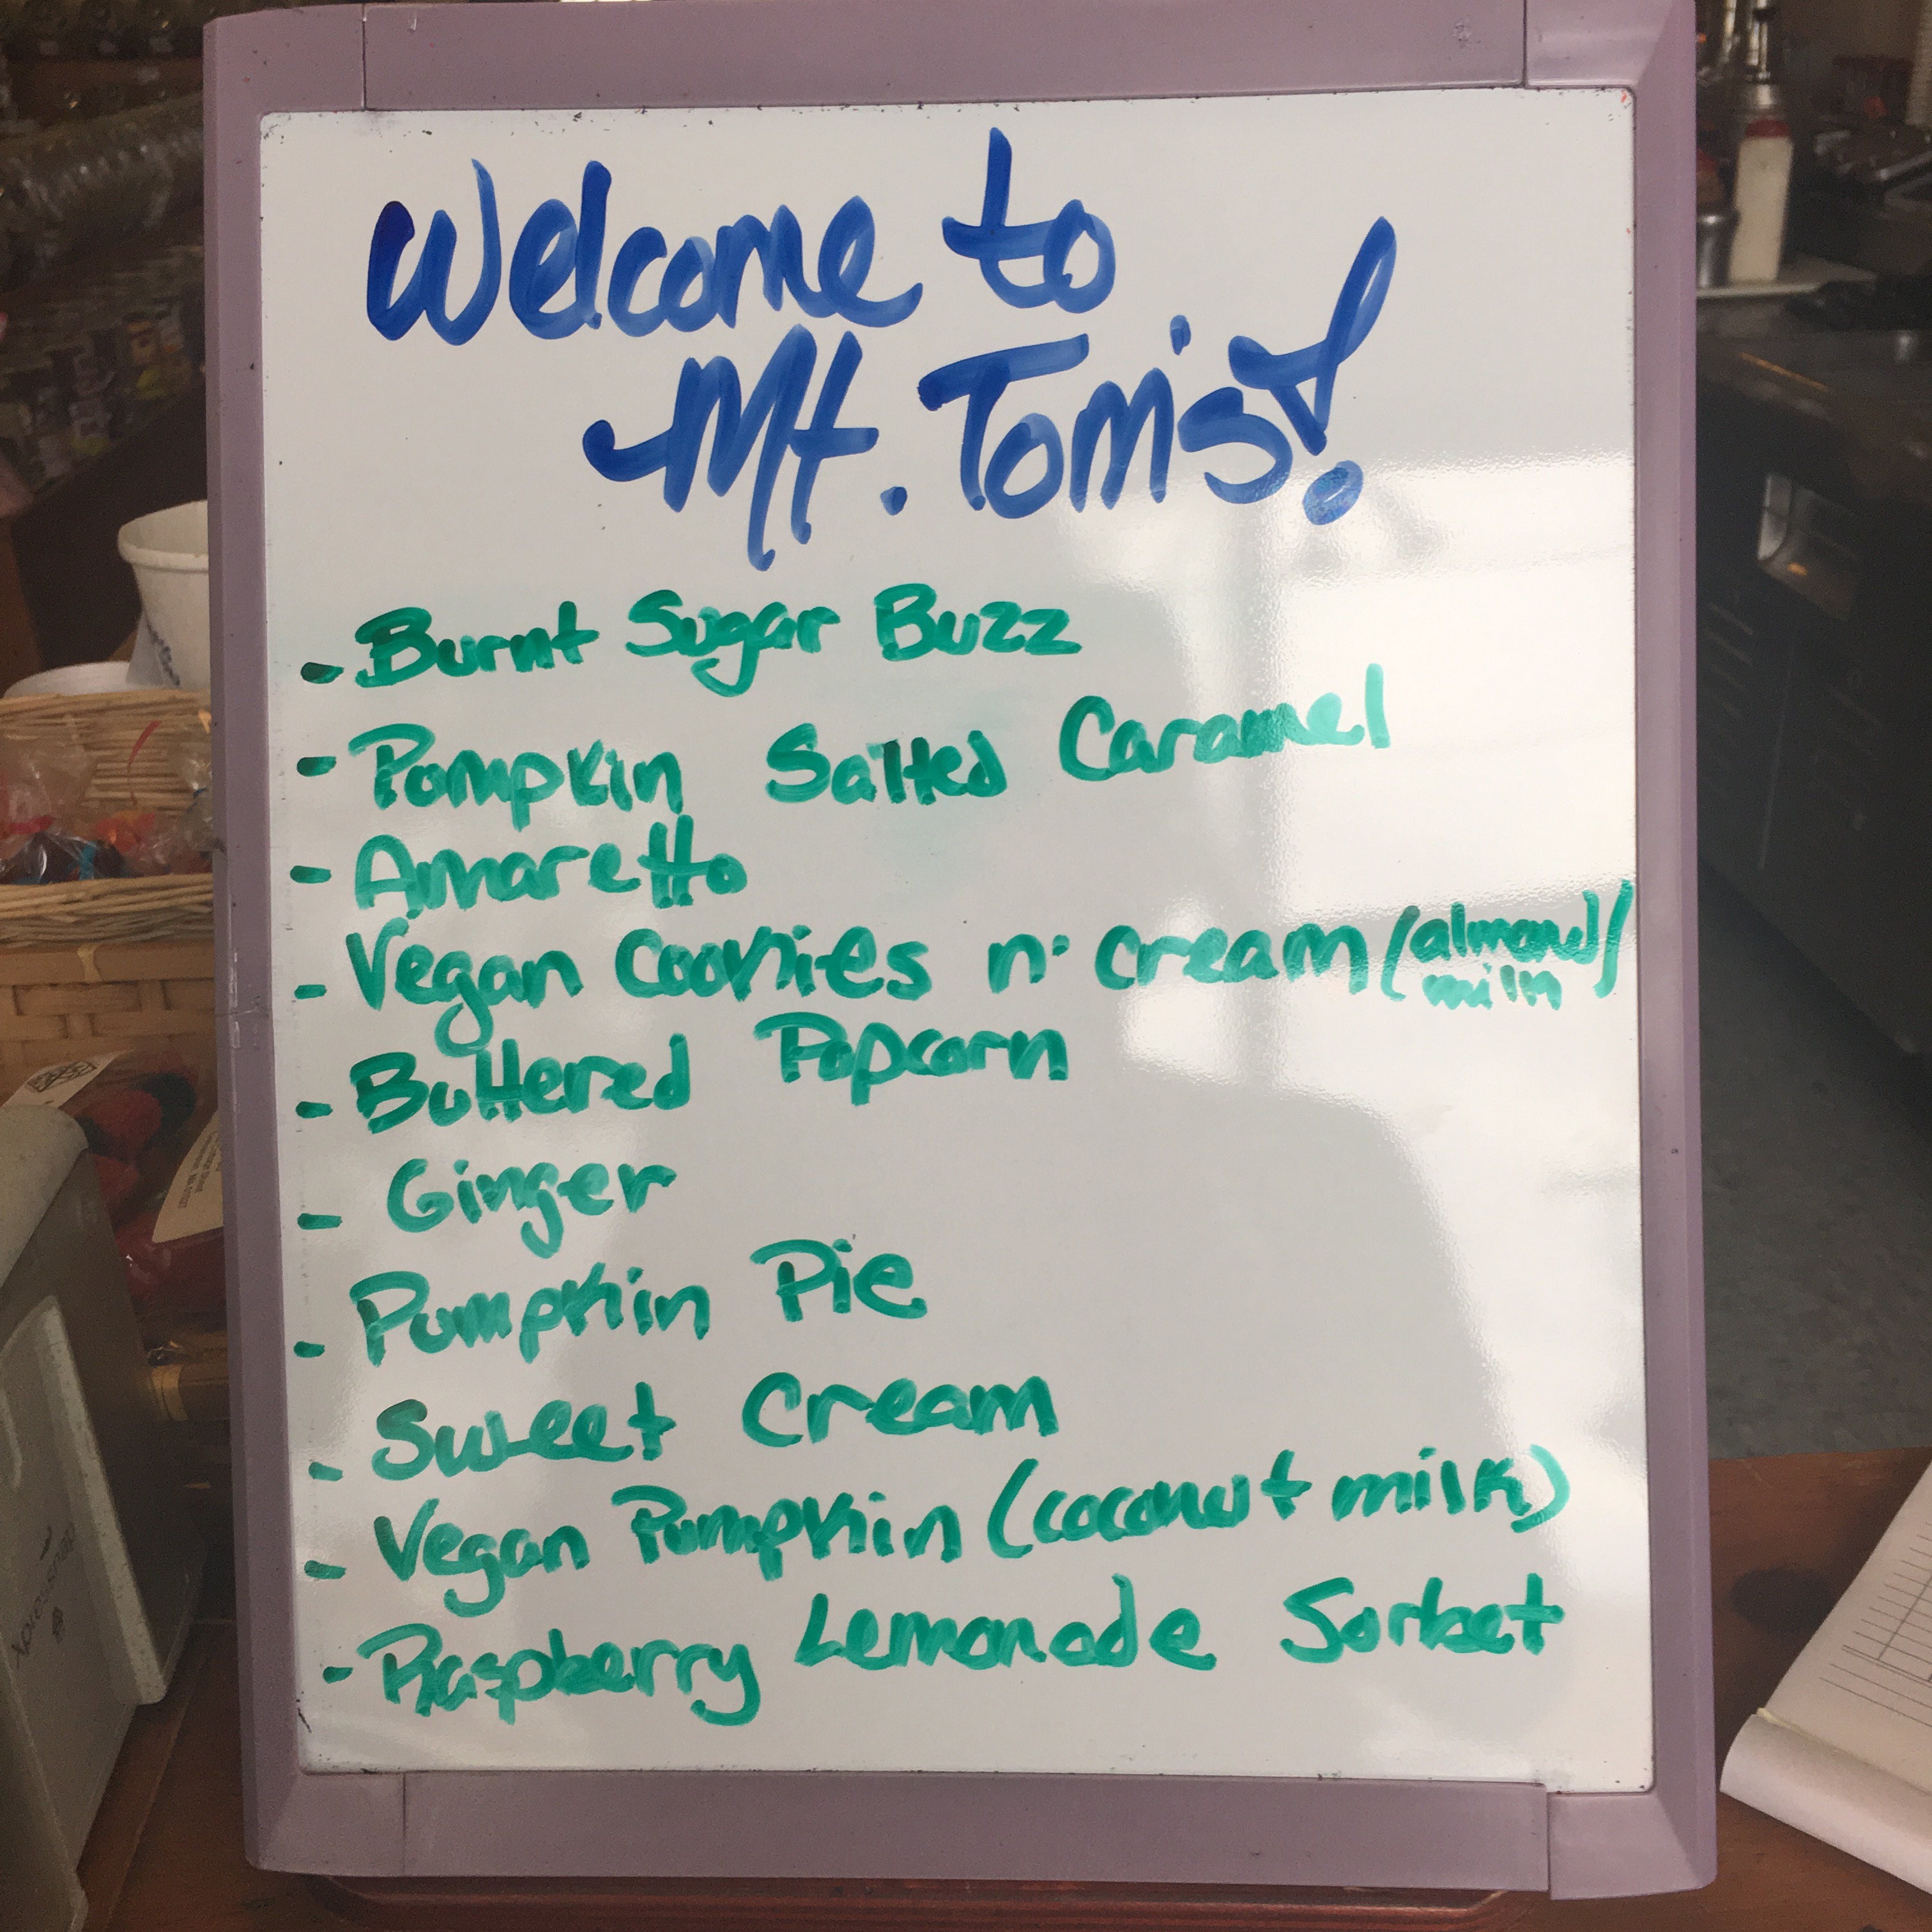 Welcome to
Mt. Tom's!
- Burnt Sugar Buzz
- Pompkin Salted Caramel
- Amaretto
- Vegan Cookies n' cream (almond milk)
- Buttered Popcorn
- Ginger
- Pumpkin Pie
- Sweet Cream
- Vegan Pumpkin (coconut milk)
- Raspberry Lemonade Sorbet